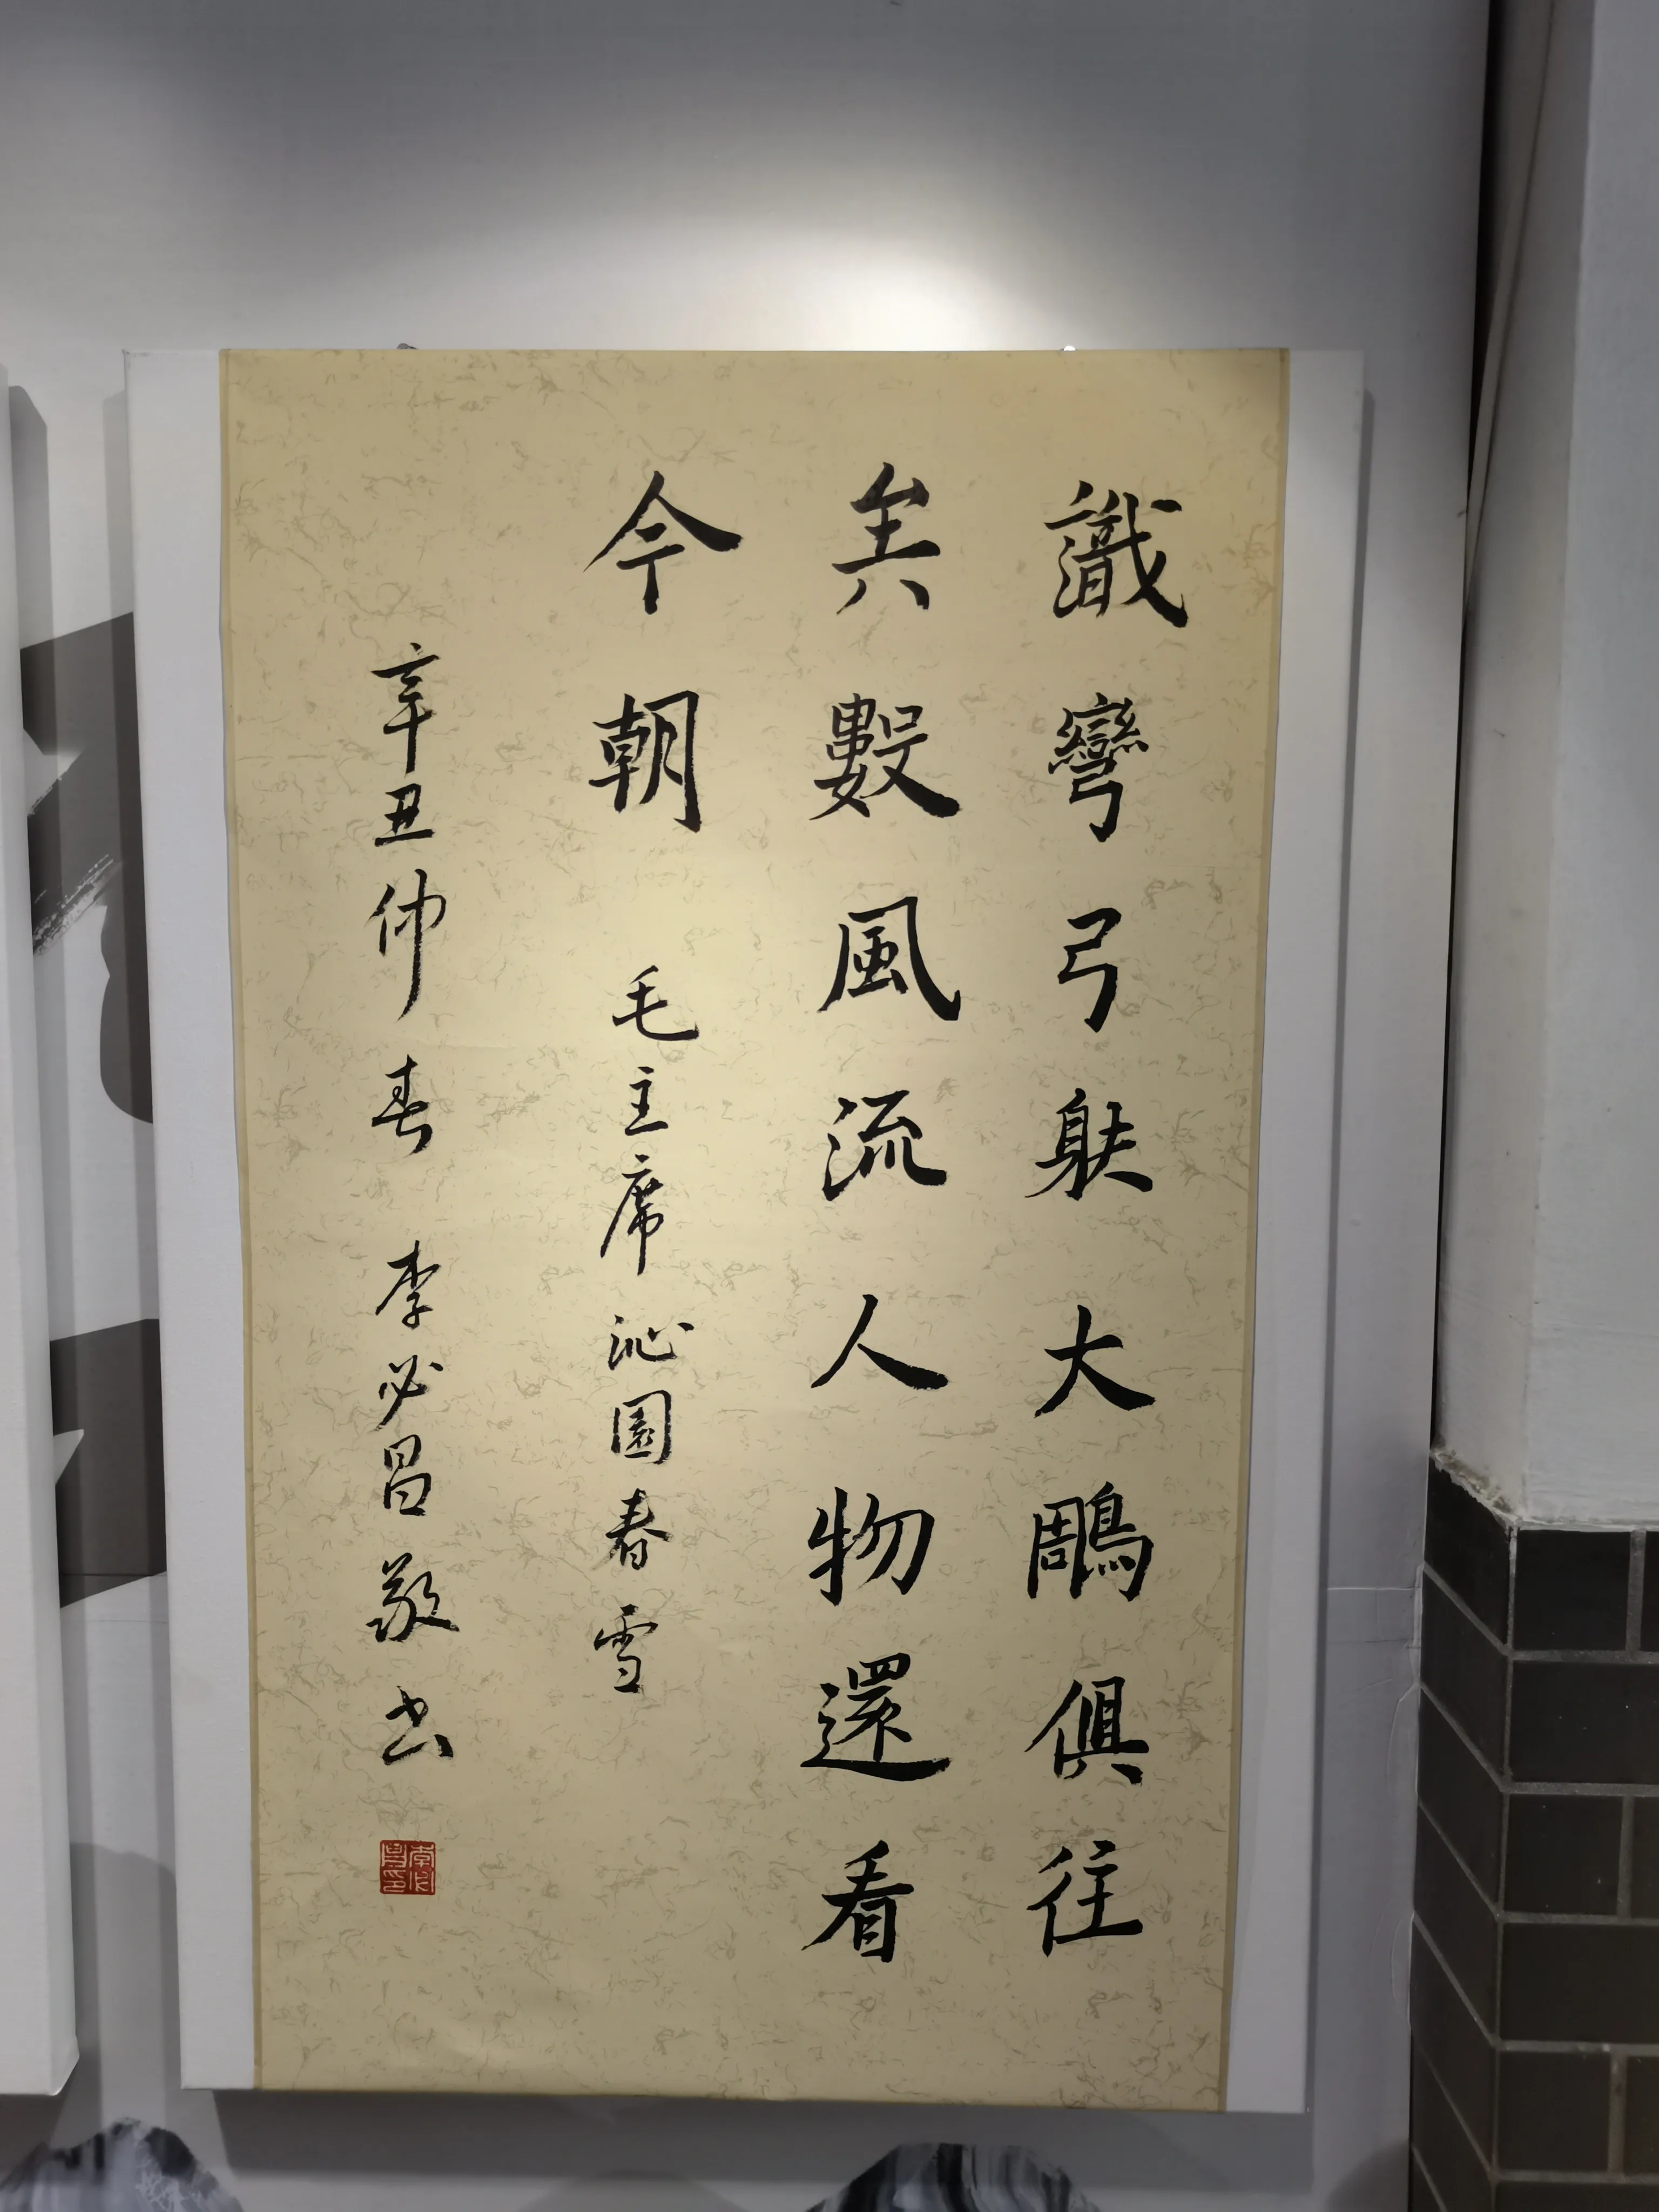 識彎弓躲大鵰俱往
矣數風流人物還看
今朝 毛主席沁園春雪
辛丑仲春 李必昌敬书